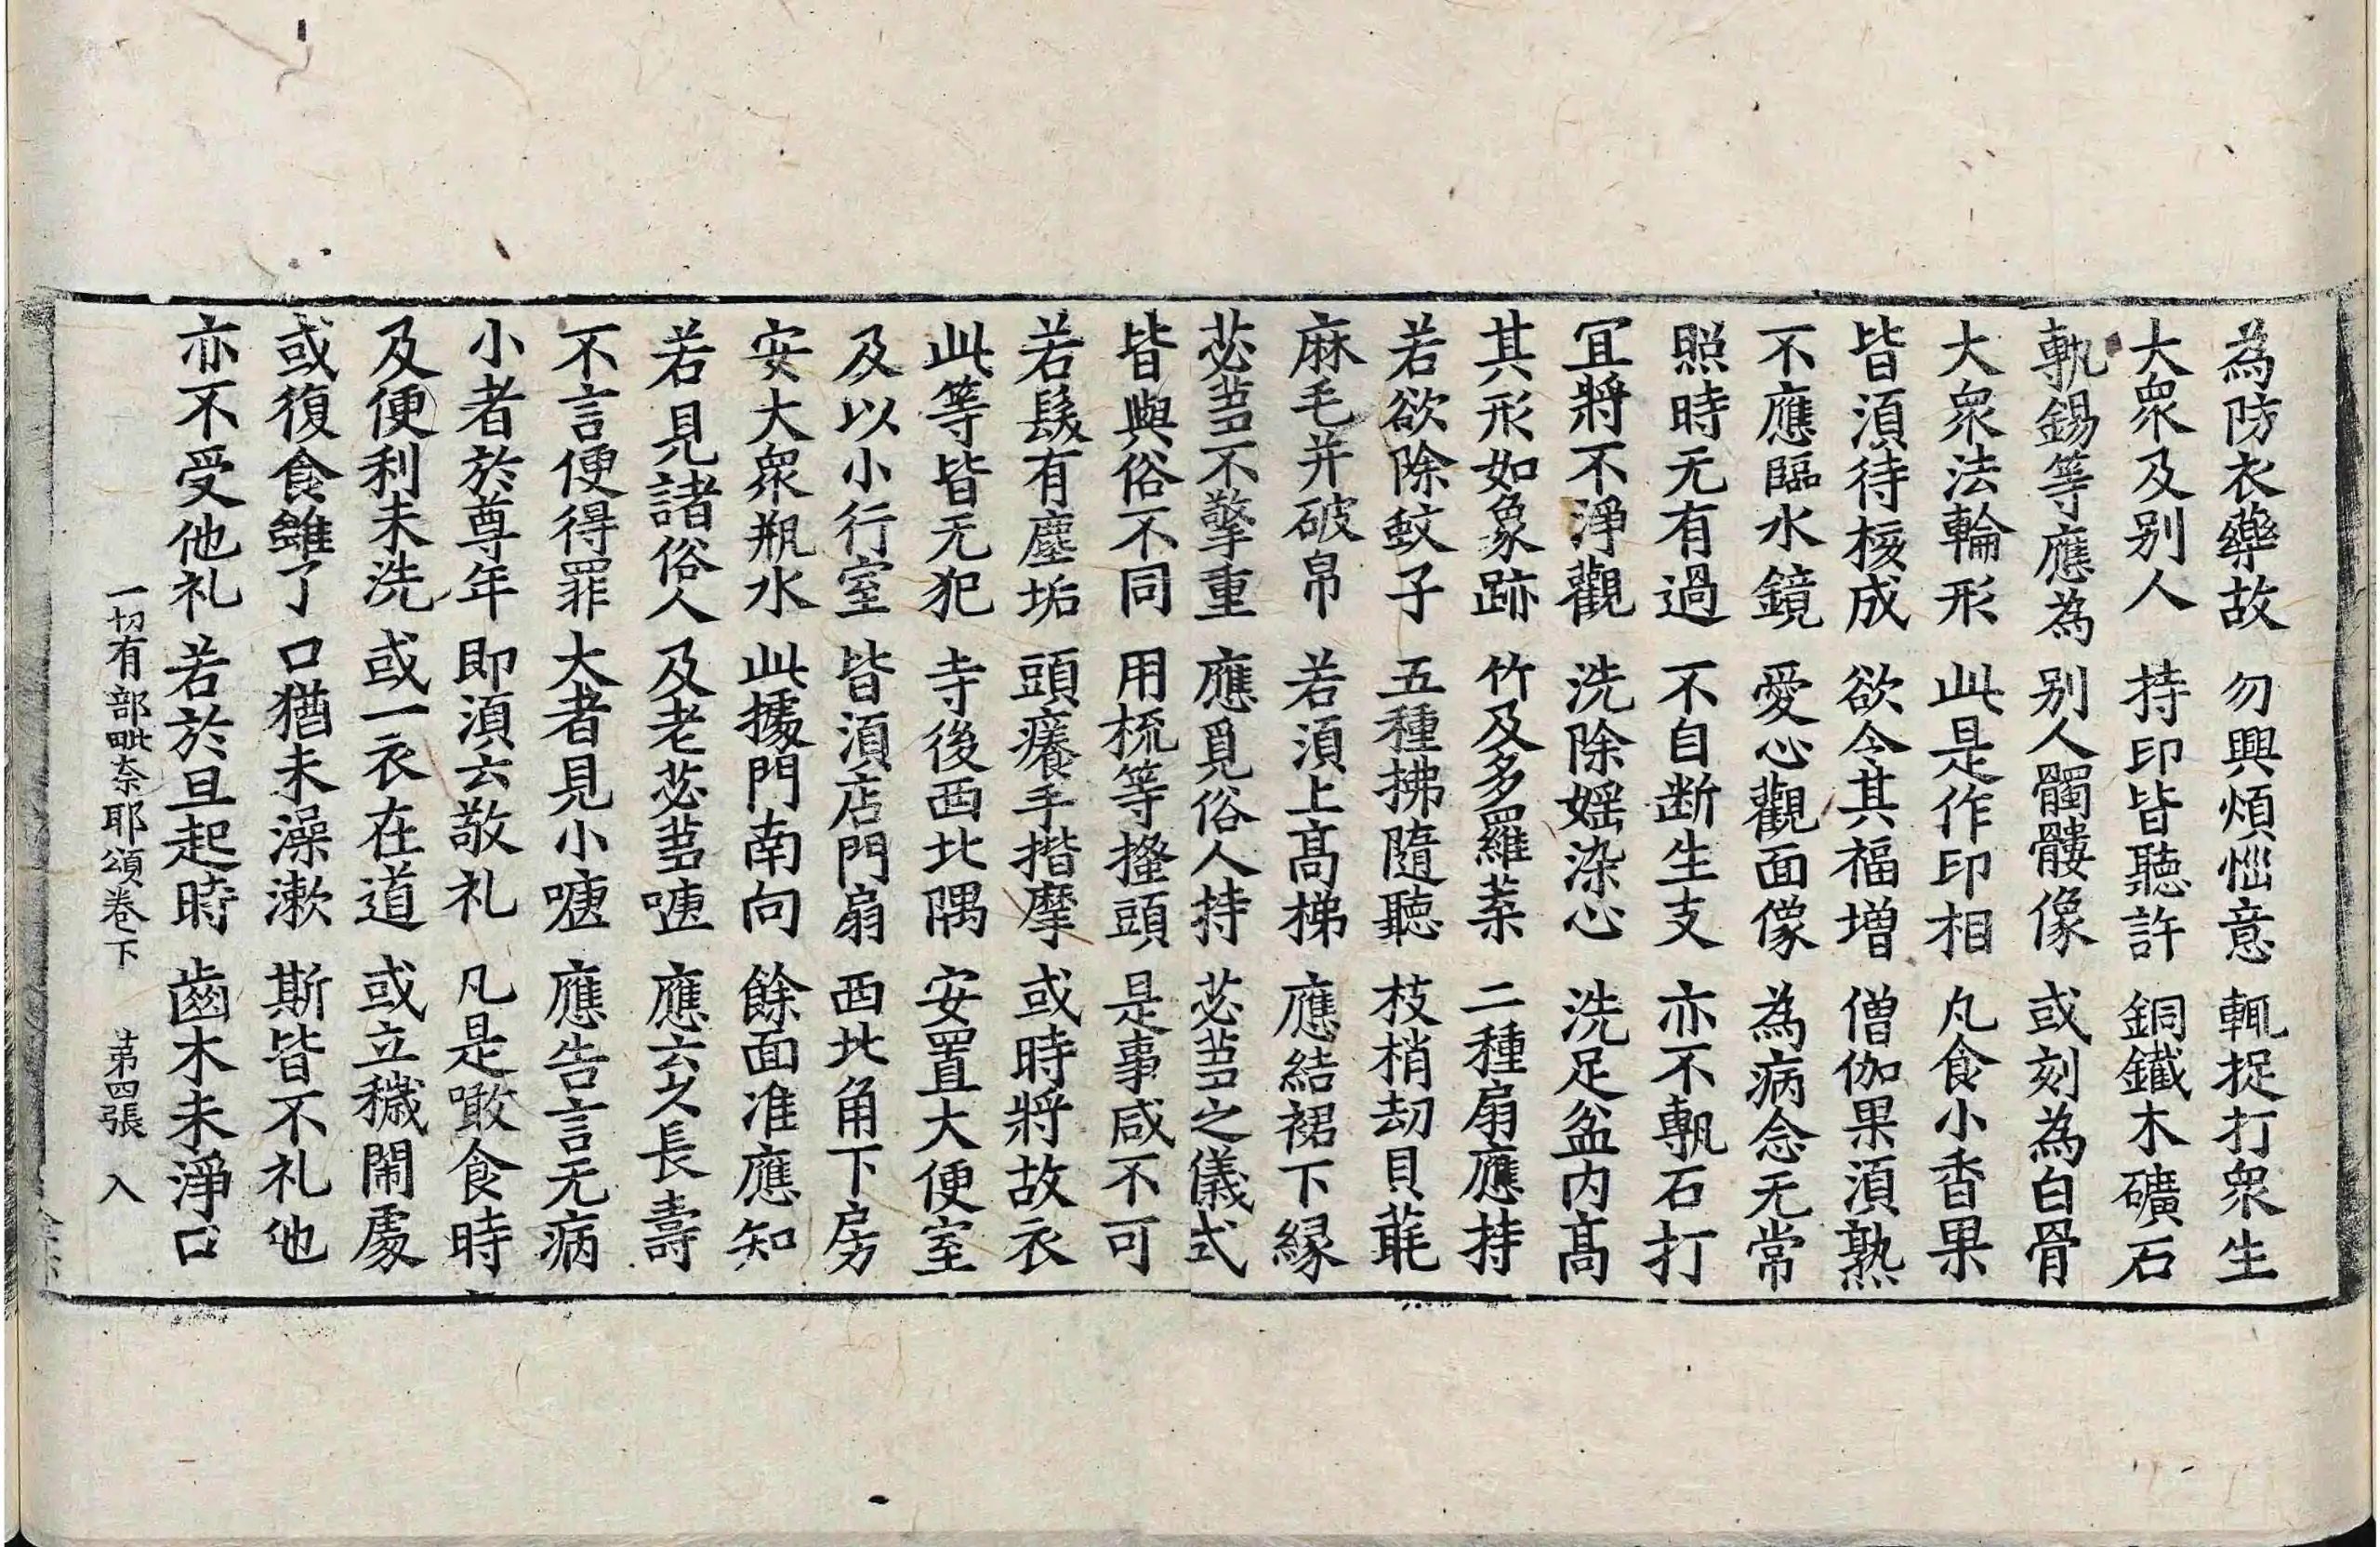 為防衣藥故 勿興煩惱意 輒捉打衆生
大衆及別人 持印皆聽許 銅鐵木礦石
執錫等應為 別人髑髏像 或刻為白骨
大衆法輪形 此是作印相 凡食小香果
皆湏待核成 欲令其福增 僧伽果湏熟
不應臨水鏡 愛心觀面像 為病念无常
照時无有過 不自斷生支 亦不執石打
冝將不淨觀 洗除婬染心 洗足盆内髙
其形如象跡 竹及多羅葉 二種扇應持
若欲除蚊子 五種拂隨聽 枝梢刧貝毦
麻毛并破帛 若湏上髙梯 應結裙下縁
苾蒭不擎重 應覓俗人持 苾蒭之儀式
皆與俗不同 用梳等搔頭 是事咸不可
若髮有塵垢 頭癢手揩摩 或時將故衣
此等皆无犯 寺後西北隅 安置大便室
及以小行室 皆湏店門扇 西北角下房
安大衆瓶水 此據門南向 餘面准應知
若見諸俗人 及老苾蒭嚏 應云久長壽
不言便得罪 大者見小嚏 應告言无病
小者於尊年 即湏云敬礼 凡是噉食時
及便利未洗 或一衣在道 或立穢閙處
或復食雖了 口猶未澡漱 斯皆不礼他
亦不受他礼 若於旦起時 齒木未淨口
一切有部毗奈耶頌卷下 苐四張 入